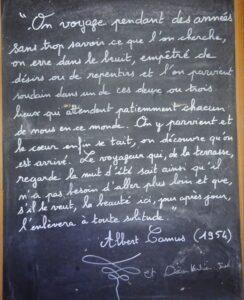 "On voyage pendant des années
sans trop savoir ce que l'on cherche,
on erre dans le bruit, empêtré de
désirs ou de repentirs et l'on parvient
soudain dans un de ces deux ou trois
lieux qui attendent patiemment chacun
de nous en ce monde. On y parvient et
le cœur enfin se tait, on découvre qu'on
est arrivé. Le voyageur qui, de la terrasse,
regarde la nuit d'été sait ainsi qu'il
n'a pas besoin d'aller plus loin et que,
s'il le veut, la beauté ici, jour après jour,
l'enlèvera à toute solitude."
Albert Camus (1954)
et